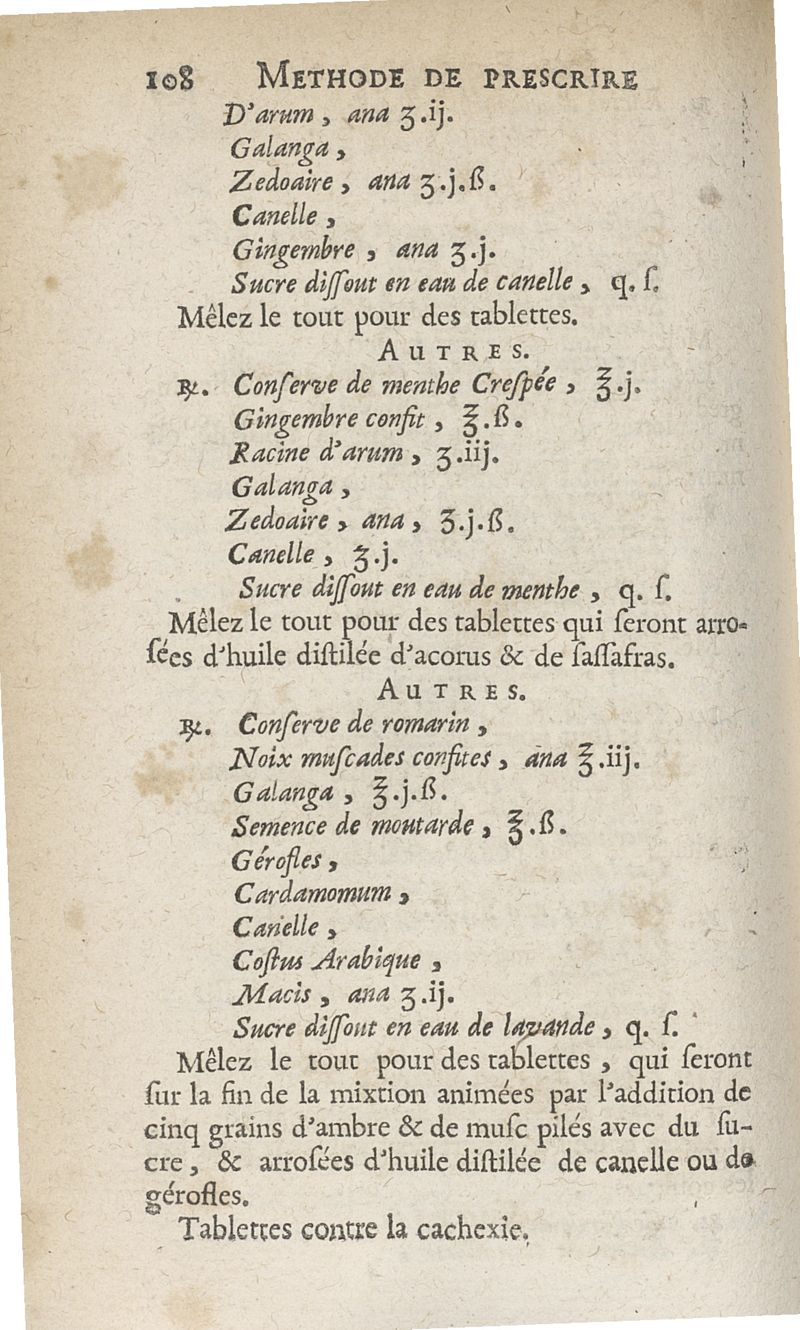 108 METHODE DE PRESCRIRE
D'arum, ana ʒ.ij.
Galanga,
Zedoaire, ana ʒ.j.ß.
Canelle,
Gingembre, ana ʒ.j.
Sucre diſſout en eau de canelle, q. ſ.
Mêlez le tout pour des tablettes.
AUTRES.
℞. Conſerve de menthe Creſpée, ℥.j.
Gingembre confit, ℥.ß.
Racine d'arum, ʒ.iij.
Galanga,
Zedoaire, ana, ʒ.j.ß.
Canelle, ʒ.j.
Sucre diſſout en eau de menthe, q. ſ.
Mêlez le tout pour des tablettes qui ſeront arro-
ſées d'huile diſtilée d'acorus & de ſaſſafras.
AUTRES.
℞. Conſerve de romarin,
Noix muſcades confites, ana ℥.iij.
Galanga, ℥.j.ß.
Semence de moutarde, ℥.ß.
Gérofles,
Cardamomum,
Canelle,
Coſtus Arabique,
Macis, ana ʒ.ij.
Sucre diſſout en eau de lavande, q. ſ.
Mêlez le tout pour des tablettes, qui ſeront
ſur la fin de la mixtion animées par l'addition de
cinq grains d'ambre & de muſc pilés avec du ſu-
cre, & arroſées d'huile diſtilée de canelle ou de
gérofles.
Tablettes contre la cachexie.